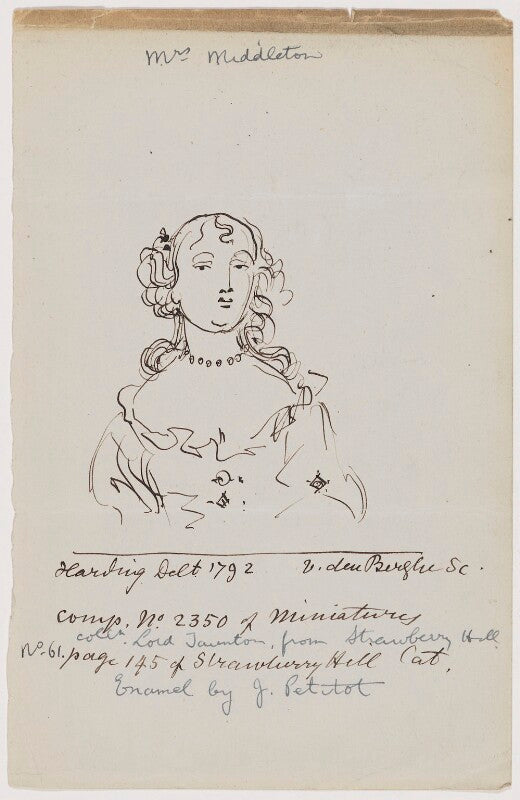 Mrs Middleton
Harding Delt 1792 V. den Berghe Sc.
Comp. No 2350 of Miniatures
colln. Lord Taunton, from Strawberry Hill
No. 61. page 145 of Strawberry Hill Cat.
Enamel by J. Petitot